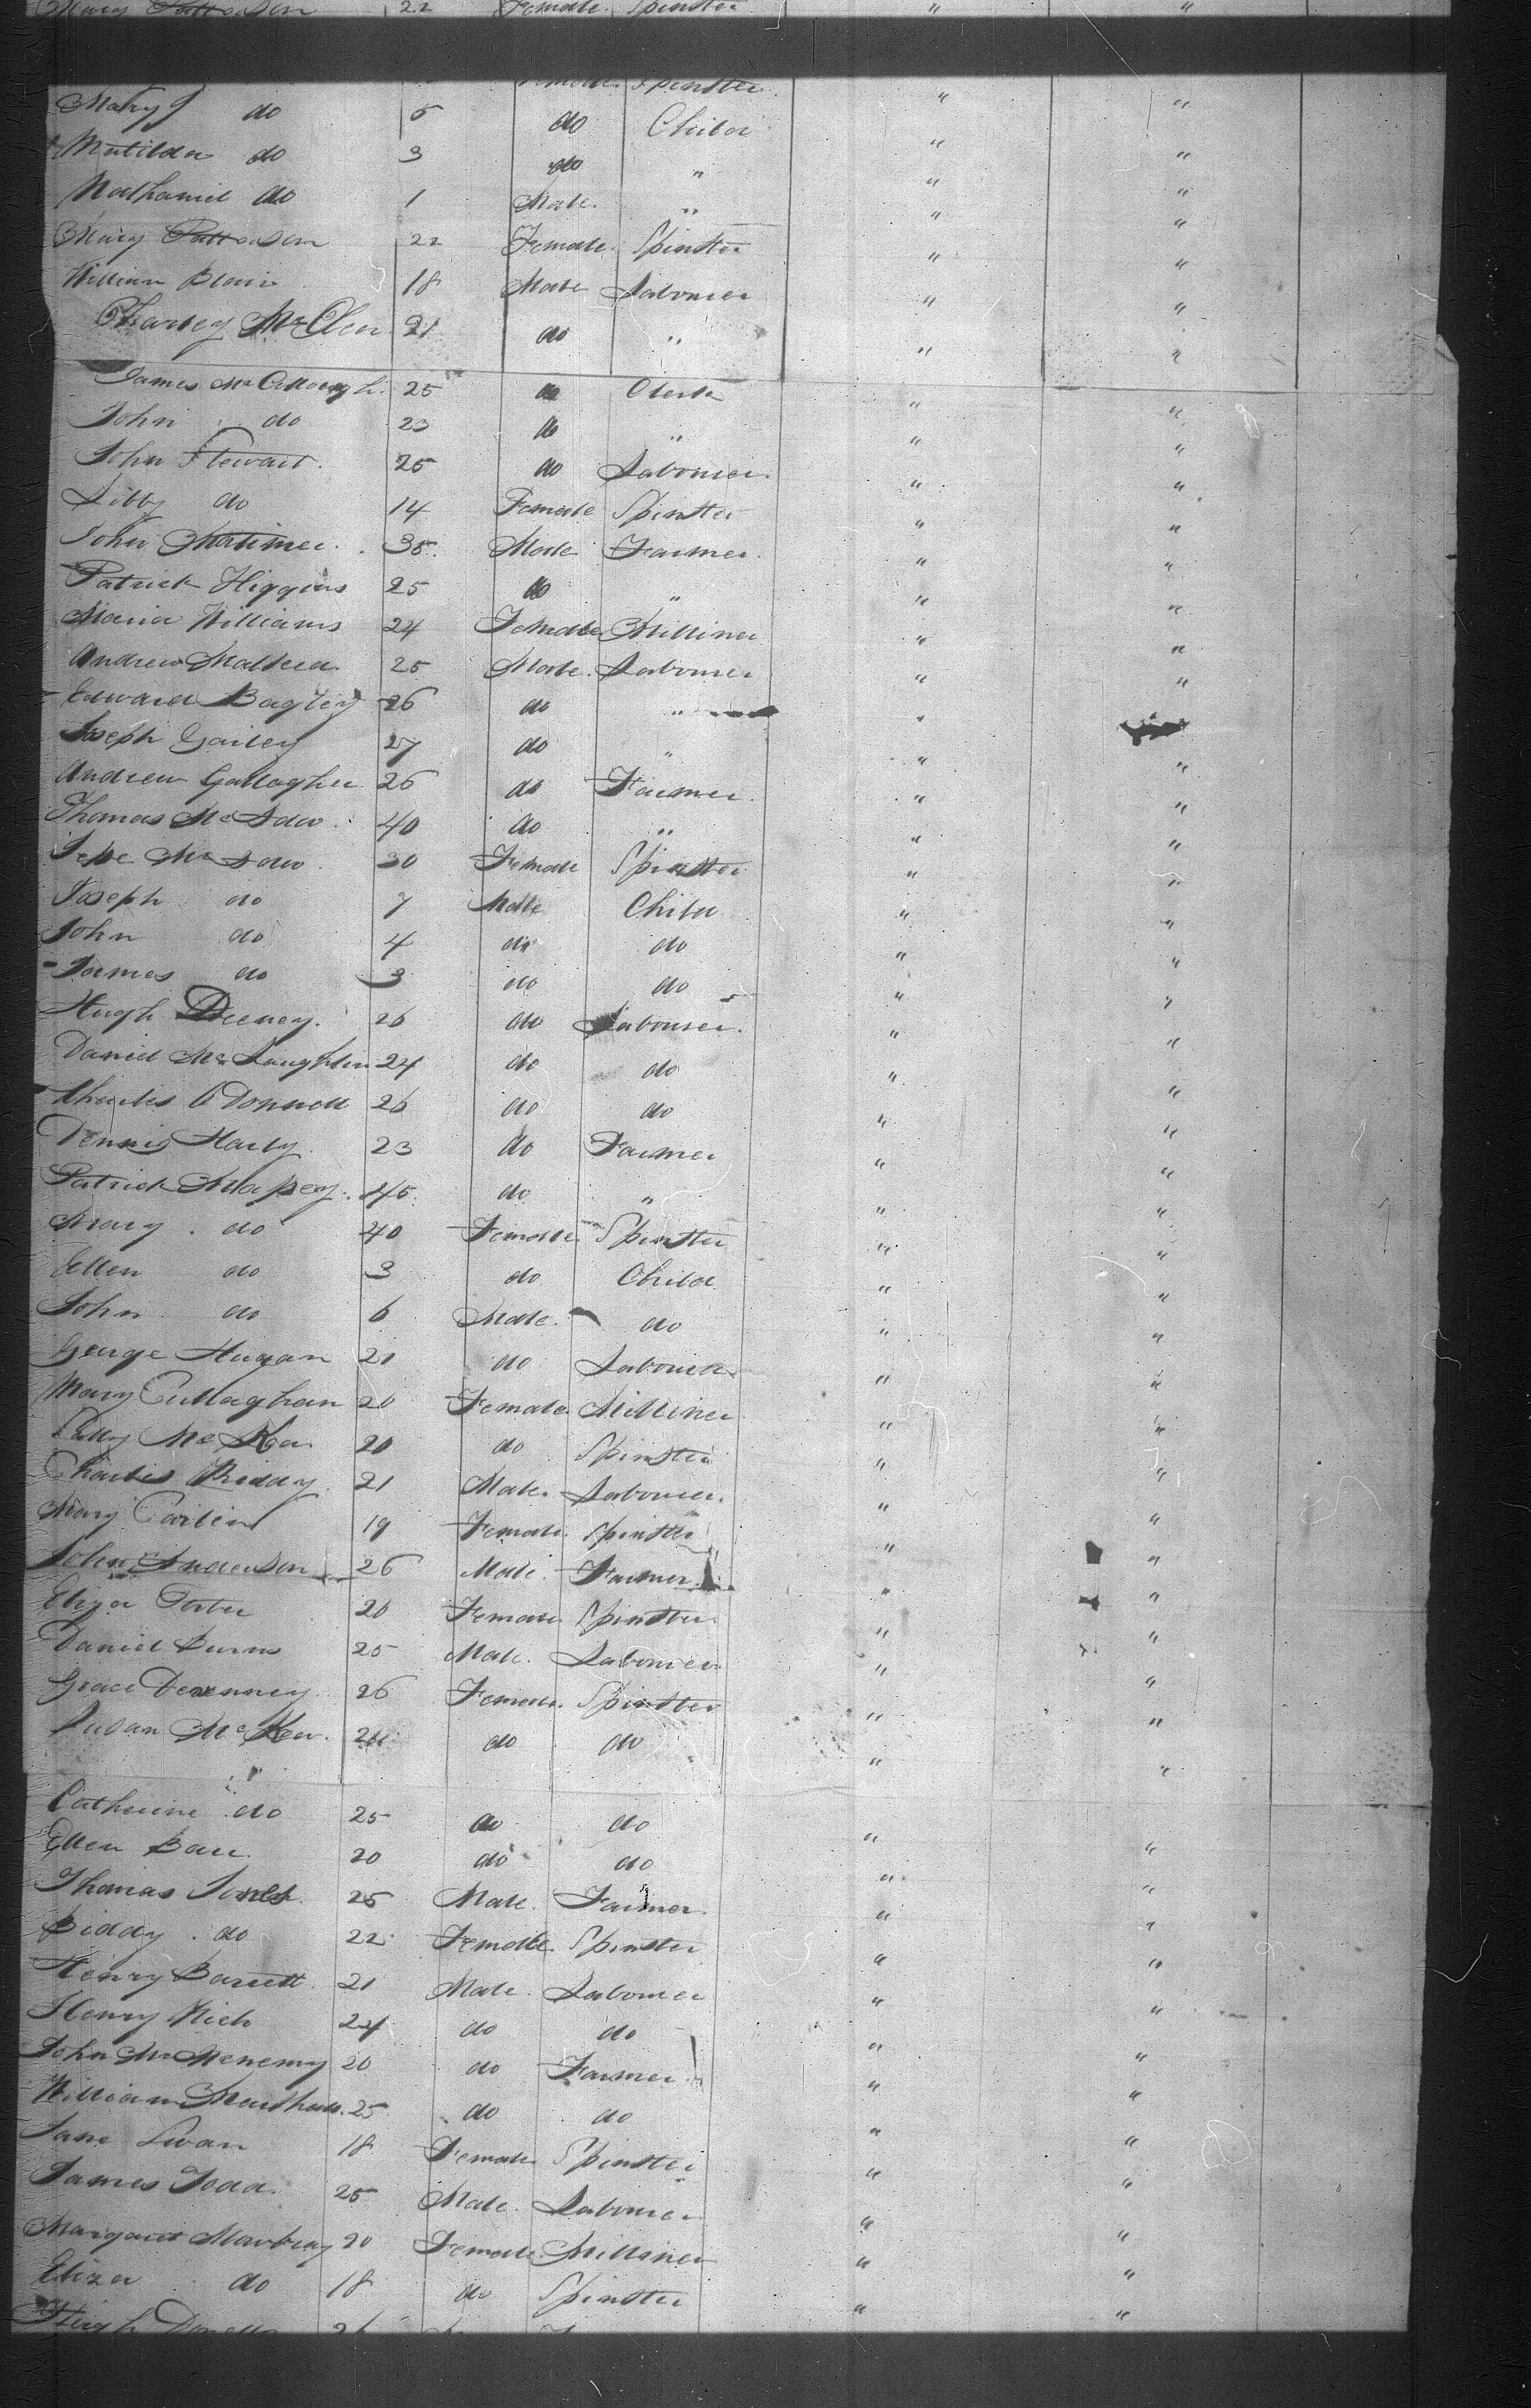 Mary Patterson 22 Female Spinster " "
Female Spinster " "
Mary J do 5 do Child " "
Matilda do 3 do " " "
Nathaniel do 1 Male " " "
Mary Patterson 22 Female Spinster " "
William Blair 18 Male Labourer " "
Charley 21 do " " "
James McCullough 25 do Clerk " "
John do 23 do " " "
John Stewart 25 do Labourer " "
Libby do 14 Female Spinster " "
John Matimer 35 Male Farmer " "
Patrick Higgins 25 do " " "
Maria Williams 24 Female Milliner " "
Andrew 25 Male Labourer " "
Edward Bagley 26 do " "
Joseph Gailey 27 do " " "
Andrew Gallagher 26 do Farmer " "
Thomas McDaw 40 do " " "
McDaw 30 Female Spinster " "
Joseph do 7 Male Child " "
John do 4 do do " "
James do 3 do do " "
Hugh Deeney 26 do Labourer " "
Daniel McLaughlin 24 do do " "
Charles O'Donnell 26 do do " "
Dennis Harly 23 do Farmer " "
Patrick 45 do " " "
Mary do 40 Female Spinster " "
Ellen do 3 do Child " "
John do 6 Male do " "
George Hugan 21 do Labourer " "
Mary Cullaghan 20 Female Milliner " "
McKea 20 do Spinster " "
Charles 21 Male Labourer " "
Mary Carlin 19 Female Spinster " "
John Anderson 26 Male Farmer " "
Eliza Porter 20 Female Spinster " "
Daniel Burns 25 Male Labourer " "
Grace Devenney 26 Female Spinster " "
Susan McKea do do " "
Catherine do 25 do do " "
Ellen Barr 20 do do " "
Thomas 25 Male Farmer " "
Biddy do 22 Female Spinster " "
Henry Barrett 21 Male Labourer " "
Henry 24 do do " "
John McMenemy 20 do Farmer " "
William 25 do do " "
Jane Swan 18 Female Spinster " "
James Todd 25 Male Labourer " "
Margaret 20 Female Milliner " "
Eliza do 18 do Spinster " "
Hugh 26